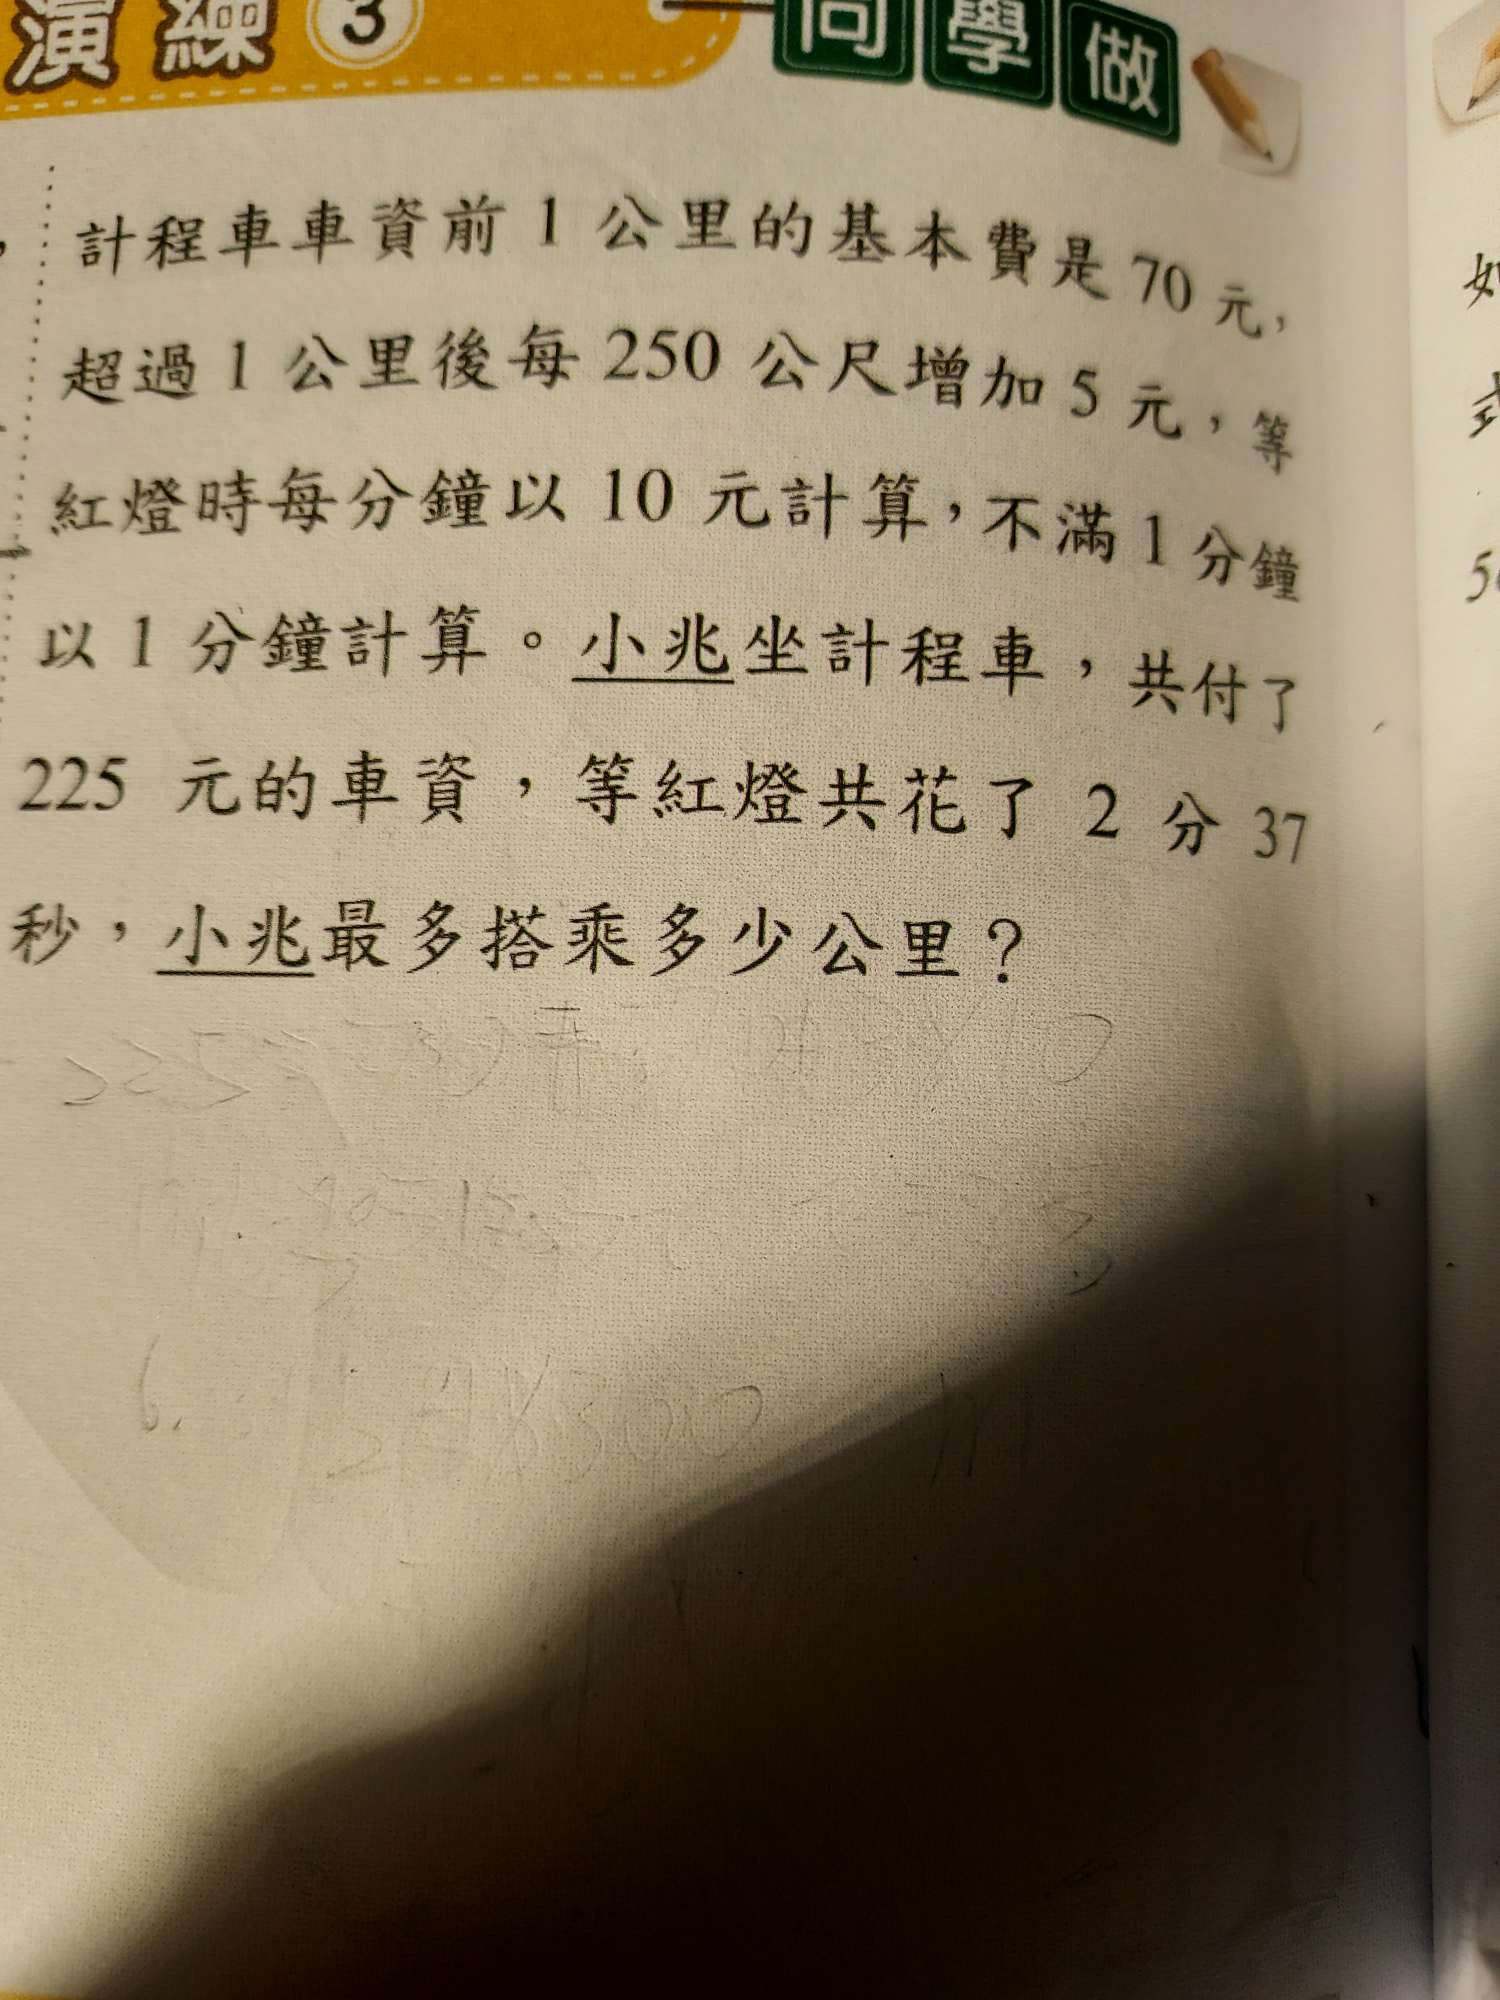 演練 3 同學做
計程車車資前 1 公里的基本費是 70 元，
超過 1 公里後每 250 公尺增加 5 元，等
紅燈時每分鐘以 10 元計算，不滿 1 分鐘
以 1 分鐘計算。小兆坐計程車，共付了
225 元的車資，等紅燈共花了 2 分 37
秒，小兆最多搭乘多少公里？